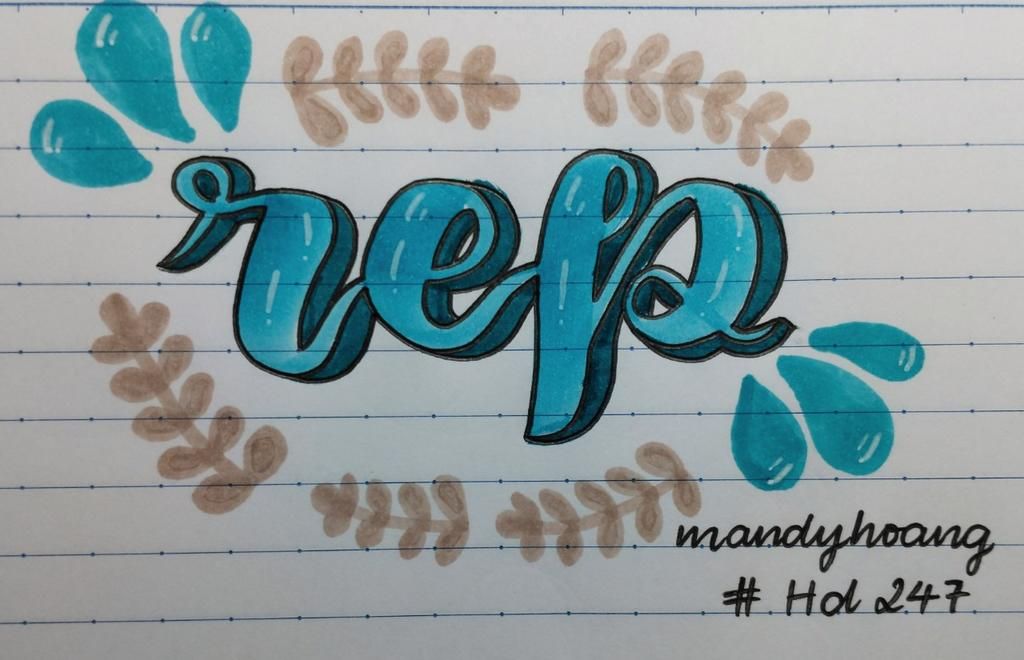 rep
mandyhoang
# Hd 247